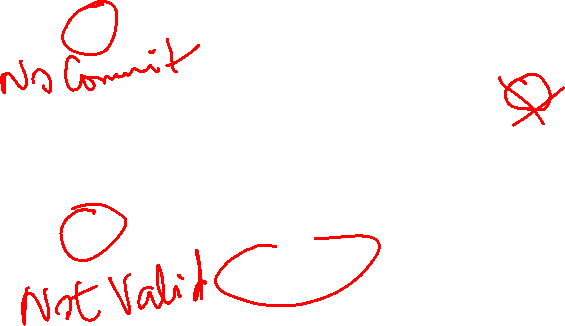 No Commit
Not Valid